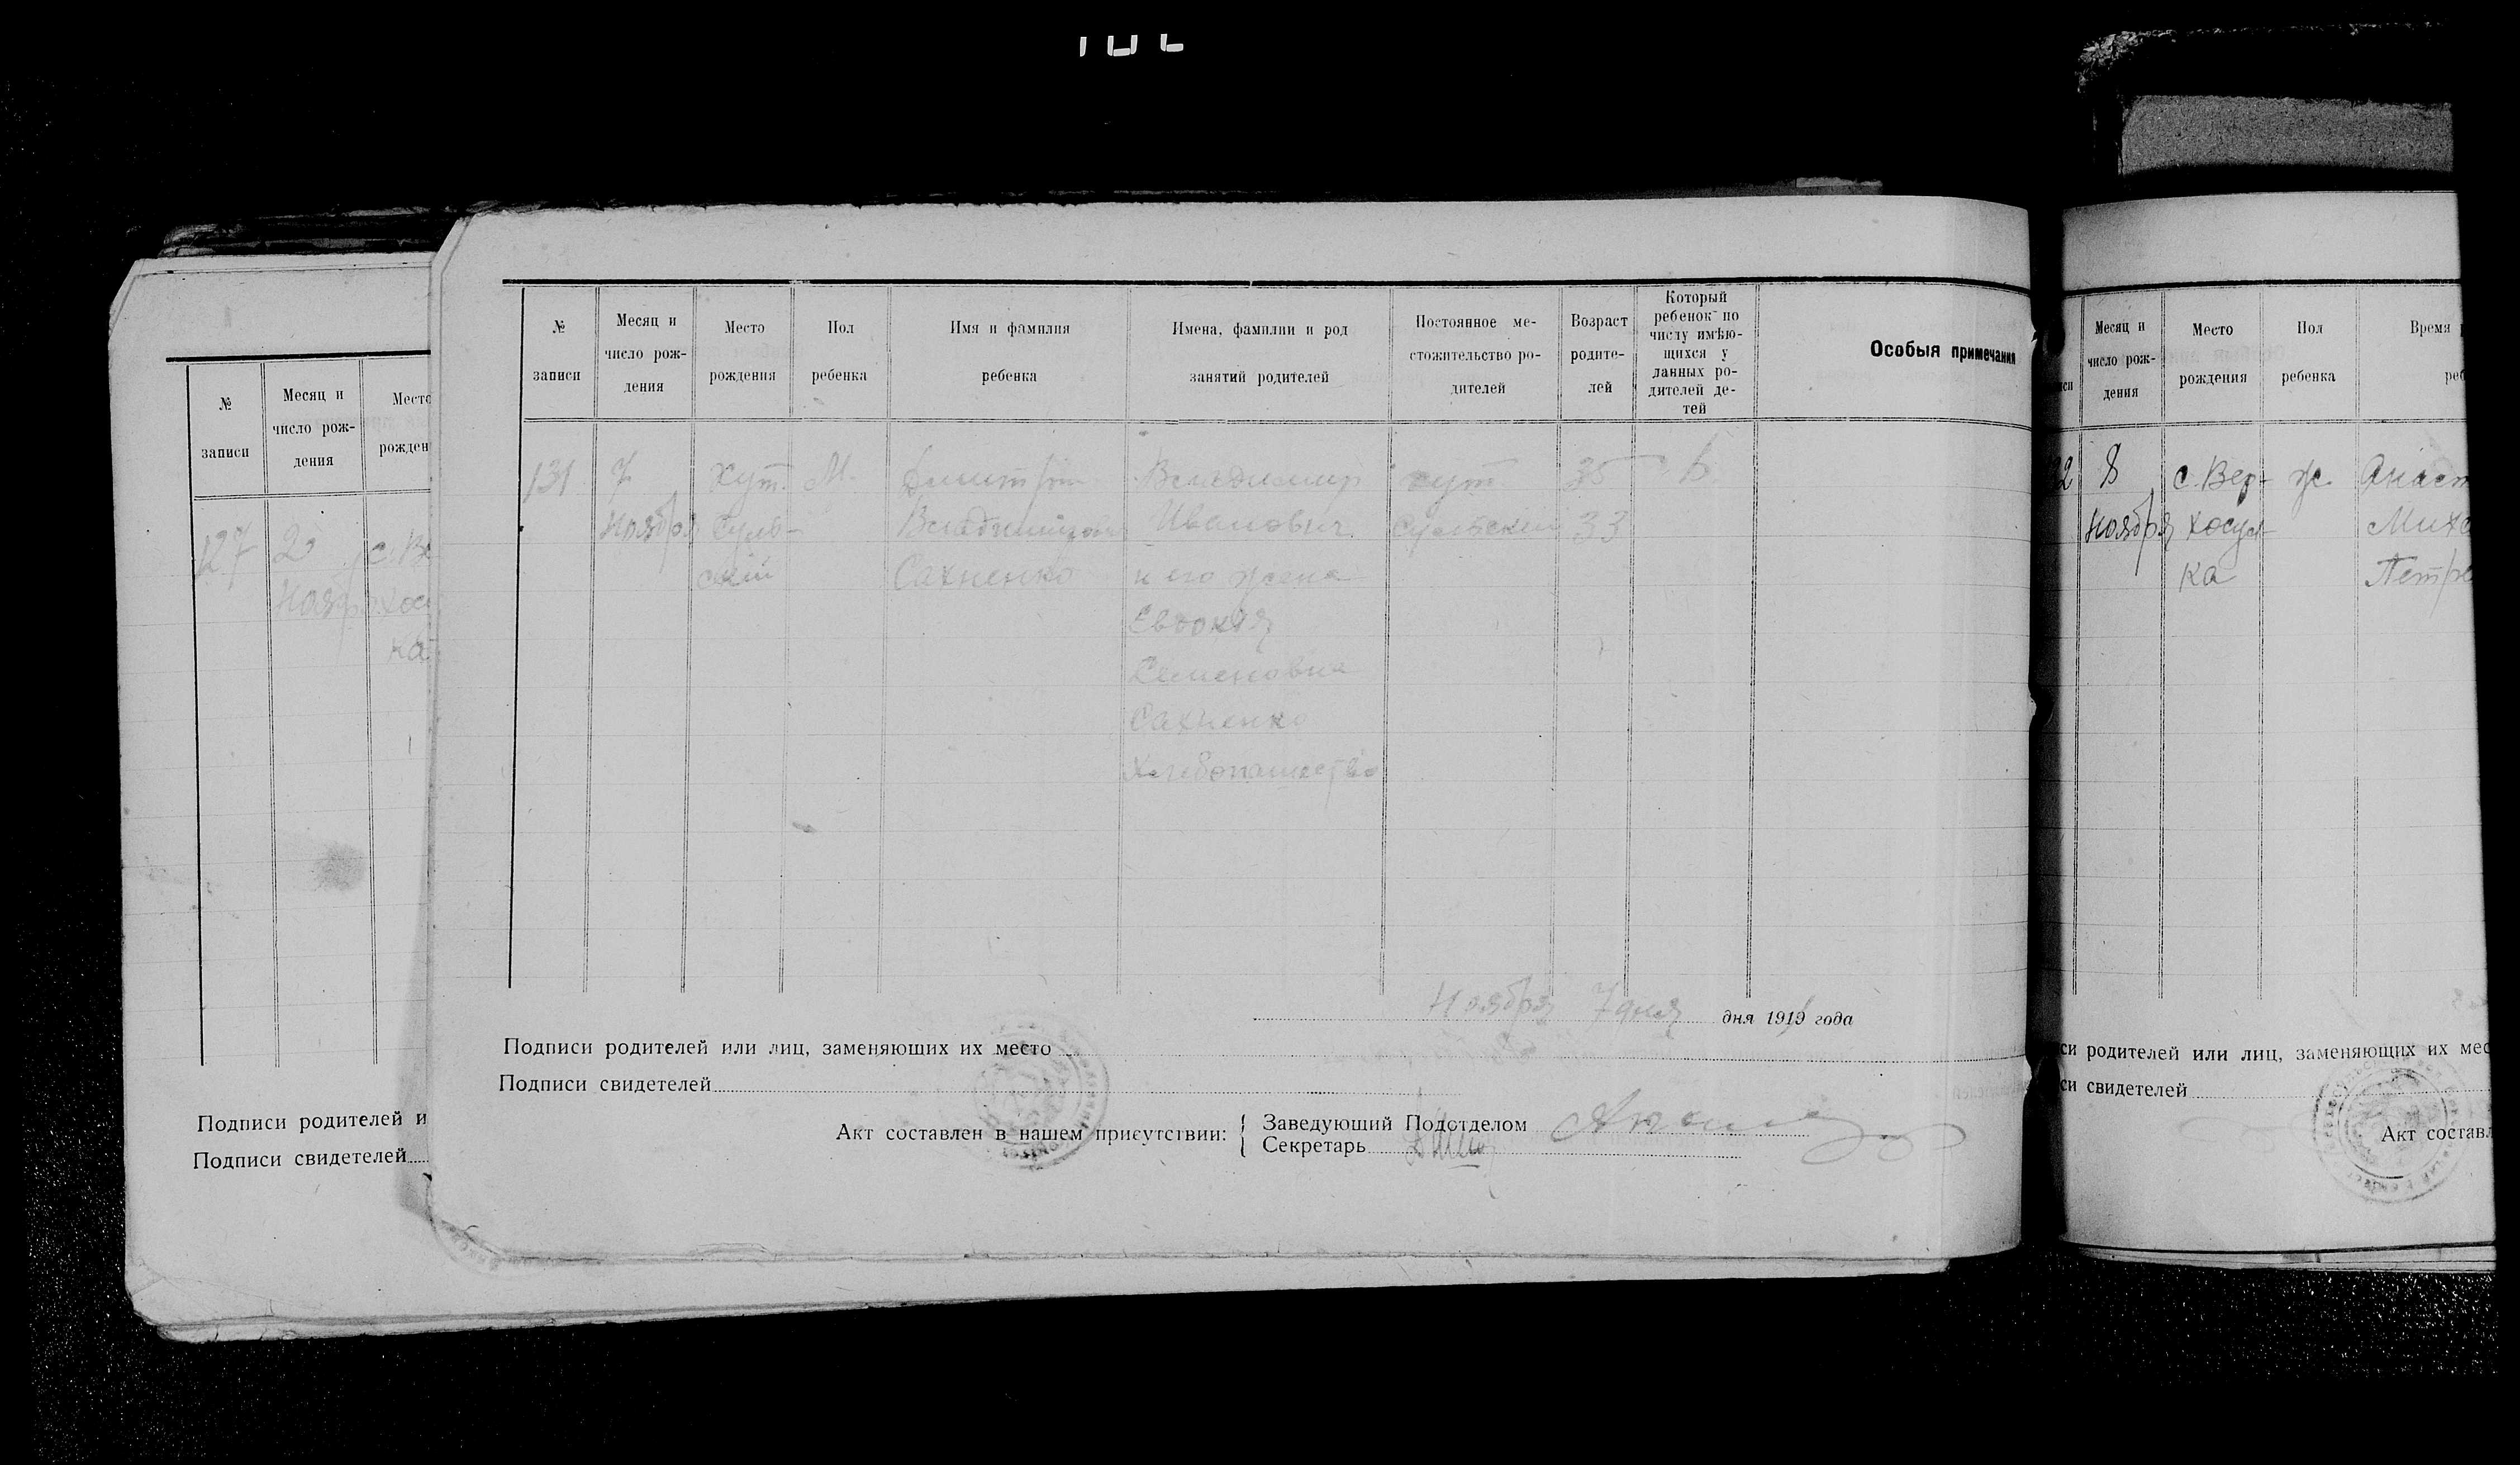 №
записи
Месяц и
число рож-
дения
Место
рожден
127
2
с. Ве
Ноября
хос
ка
Подписи родителей и
Подписи свидетелей
№
записи
Месяц и
число рож-
дения
Место
рождения
Пол
ребенка
Имя и фамилия
ребенка
Имена, фамилии и род
занятий родителей
Постоянное ме-
стожительство ро-
дителей
Возраст
родите-
лей
Который
ребенок по
числу имѣю-
щихся у
данных ро-
дителей де-
тей
Особыя примечания
131
7
Ноября
Хут.
Суль-
скій
М.
Димитрій
Владимиров
Сахненко
Владимир
Иванович
и его жена
Евдокія
Семеновна
Сахненко
Хлебопашество
хут.
Сульский
35
33
Ноября 7 дня дня 1919 года
Подписи родителей или лиц, заменяющих их место
Подписи свидетелей
Акт составлен в нашем присутствии:
Заведующий Подотделом
Секретарь
Месяц и
число рож-
дения
Место
рождения
Пол
ребенка
Время
реб
8
Ноября
с. Вер-
хосул-
ка
ж.
Анаст
Миха
Петре
си родителей или лиц, заменяющих их мес
си свидетелей
Акт составл